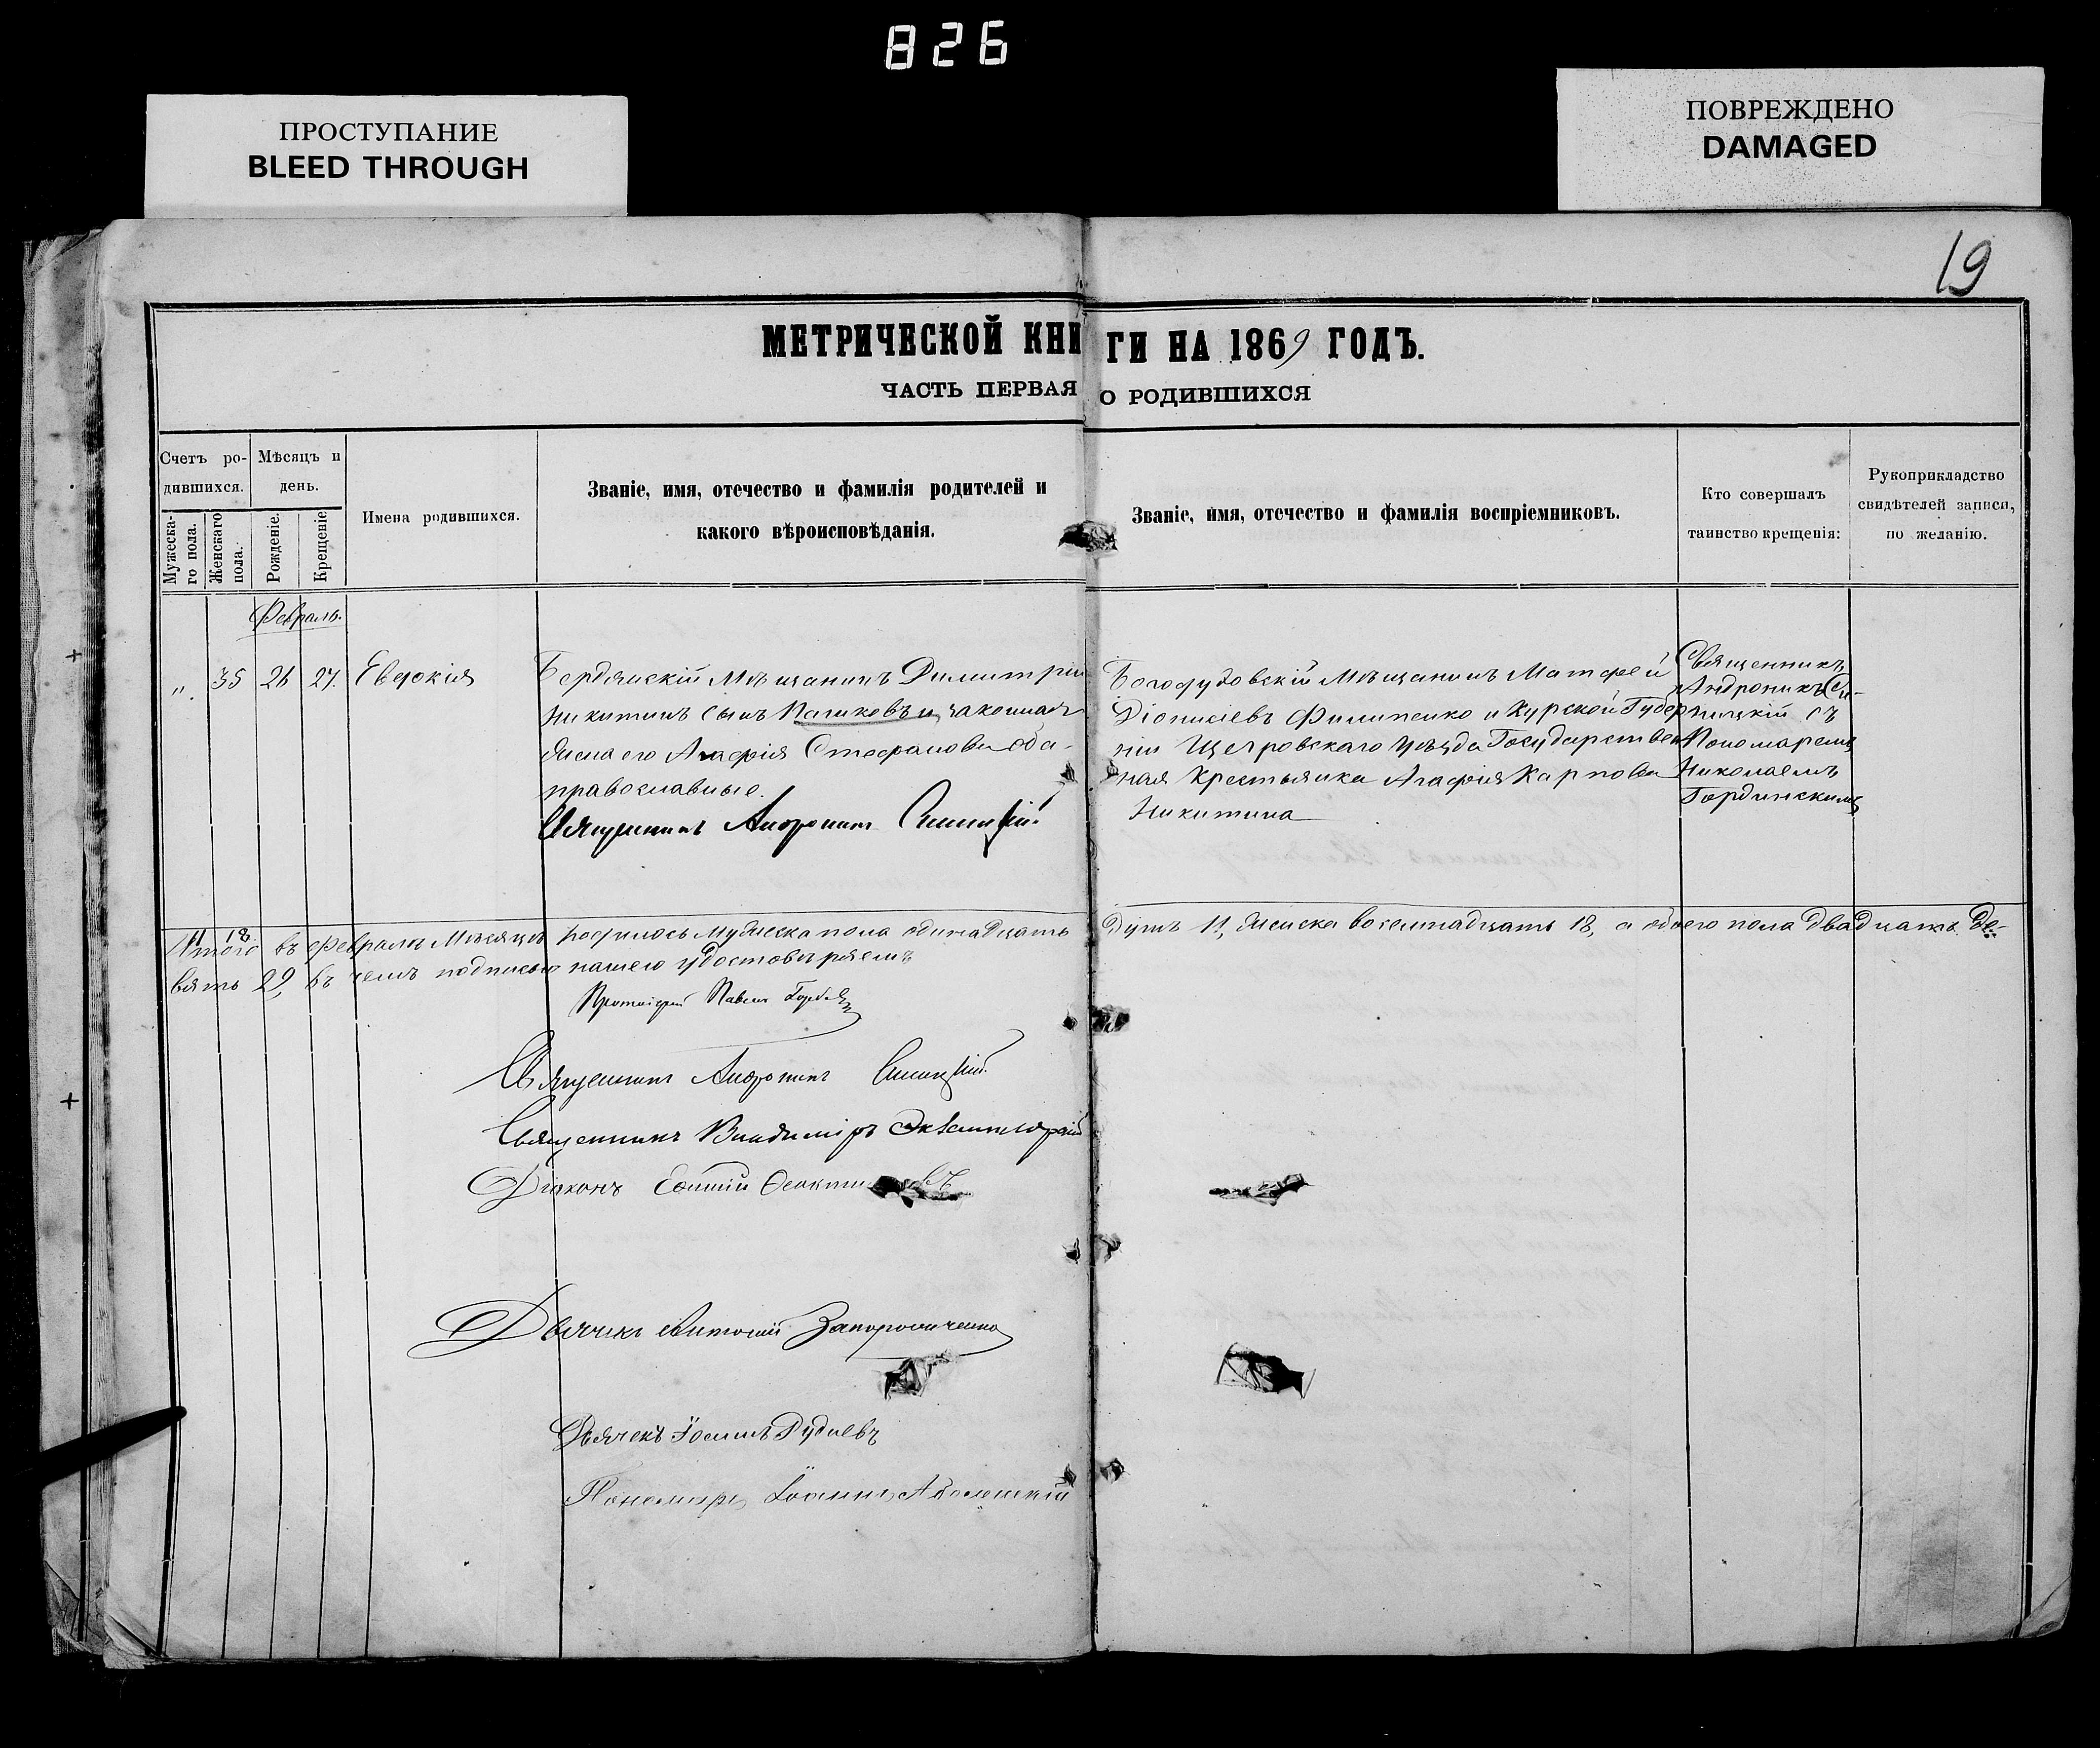 826
ПРОСТУПАНИЕ
BLEED THROUGH
ПОВРЕЖДЕНО
DAMAGED
19
МЕТРИЧЕСКОЙ КНИГИ НА 1869 ГОДЪ.
ЧАСТЬ ПЕРВАЯ О РОДИВШИХСЯ
Счетъ ро-
дившихся.
Мѣсяцъ и
день.
Мужеска-
го пола.
Женскаго
пола.
Рожденіе.
Крещеніе
Имена родившихся.
Званіе, имя, отечество и фамилія родителей и
какого вѣроисповѣданія.
Званіе, имя, отечество и фамилія воспріемниковъ.
Кто совершалъ
таинство крещенія:
Рукоприкладство
свидѣтелей записи,
по желанію.
Февраль.
". 35 26 27. Евдокія
Бердянскій Мѣщанинъ Димитрій
Никитинъ сынъ Пашковъ и законная
жена его Агафія Стефанова оба
православные.
Священникъ Андроникъ Синицкій
Мѣщанинъ Матфей
Діонисіевъ Филипенко и Курской Губер
ніи Щегровскаго уѣзда Государствен
ная крестьянка Агафія Карпова
Никитина
Священникъ
Андроникъ Си-
ницкій съ
Пономаремъ
Николаемъ
Гординскимъ
11 18
Итого въ Февралѣ Мѣсяцѣ родилось Мужеска пола одинадцать
душъ 11, Женска восемнадцать 18, а обоего пола двадцать де-
вять 29, въ чемъ подписью нашею удостовѣряемъ
Протоіерей Павелъ
Священникъ Андроникъ Синицкій
Священникъ Владиміръ
Діаконъ
Дьячекъ Антоній Запорожченко
Дьячекъ Іосифъ Рудневъ
Пономарь Іоаннъ